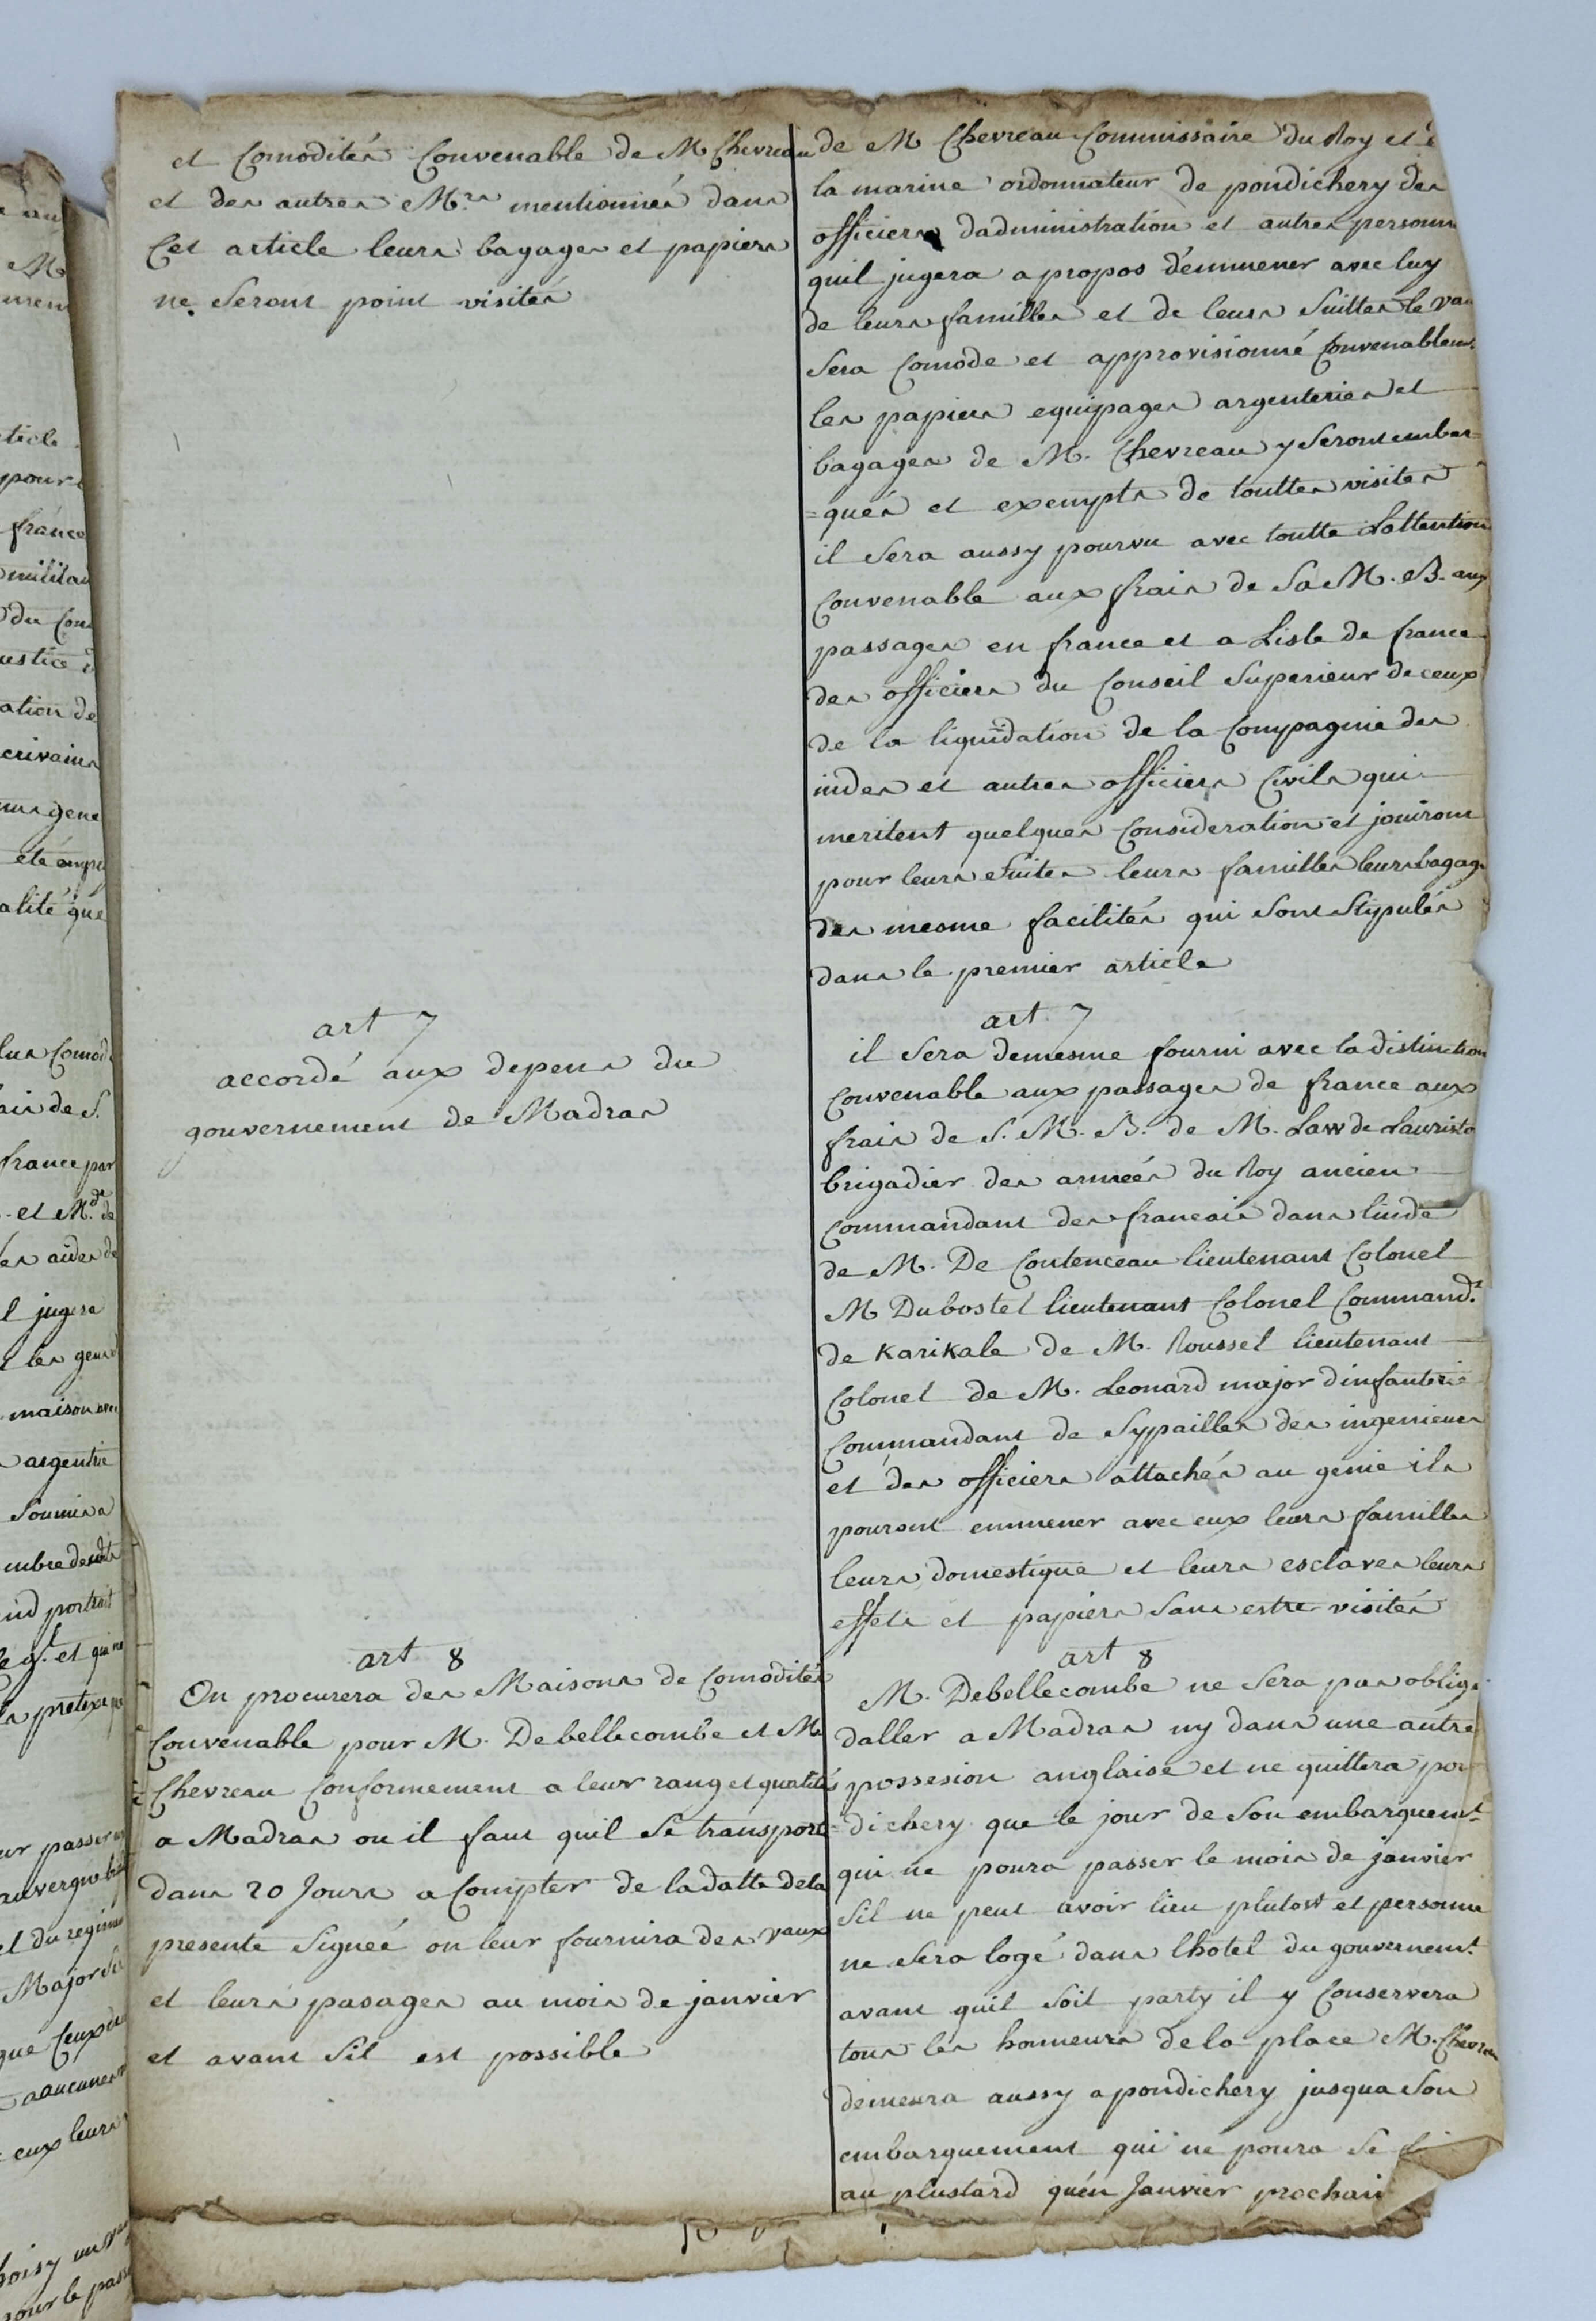 et Comodités Convenable de M Chevreau
et des autres Mrs mentionnés dans
Cet article leurs bagages et papiers
ne Seront point visités
art 7
accordé aux depens du
gouvernement de Madras
art 8
On procurera des Maisons de Comodités
Convenable pour M. Debellecombe et M
Chevreau Conformement a leur rang et qualités
a Madras ou il faut quil Se transporte
dans 20 Jours a Compter de la datte de la
presente Signée on leur fournira des vaux
et leurs pasages au mois de janvier
et avant Sil est possible
de M Chevreau Commissaire du Roy et
la marine ordonnateur de pondichery des
officiers dadministration et autres personn
quil jugera a propos démmener avec luy
de leurs familles et de leurs Suittes le vau
Sera Comode et approvisionné Convenablemt.
les papiers equipages argenteries et
bagages de M. Chevreau y Seront embar=
=qués et exempts de touttes visites
il Sera aussy pourvu avec toutte Lattention
Convenable aux frais de Sa M. B. aux
passages en france et a Lisle de france
des officiers du Conseil Superieur de ceux
de la liquidation de la Compagnie des
indes et autres officiers Civils qui
meritent quelques Consideration et jouiront
pour leurs Suites leurs familles leurs bagag
des mesme facilités qui Sont Stipulés
dans le premier article
art. 7
il Sera demesme fourni avec la distinction
Convenable aux passages de france aux
frais de S. M. B. de M. Law de Lauristo
brigadier des armées du Roy ancien
Commandant des francais dans linde
de M. De Coutenceau lieutenant Colonel
M Dubostel lieutenant Colonel Commandt.
de Karikale de M. Roussel lieutenant
Colonel de M. Leonard major dinfanterie
Commandant de Sypailles des ingenieurs
et des officiers attachés au genie ils
pouront emmener avec eux leurs familles
leurs domestique et leurs esclaves leurs
effets et papiers Sans estre visités
art 8
M. Debellecombe ne Sera pas oblige
daller a Madras ny dans une autre
possesion anglaise et ne quittera pon
=dichery que le jour de Son embarquemt.
qui ne poura passer le mois de janvier
Sil ne peut avoir lieu plutost et personne
ne Sera logé dans lhotel du gouvernemt.
avant quil Soit party il y Conservera
tous les honneurs de la place M. Chevreau
demeura aussy a pondichery jusqua Son
embarquement qui ne poura Se
au plustard quén Janvier prochain